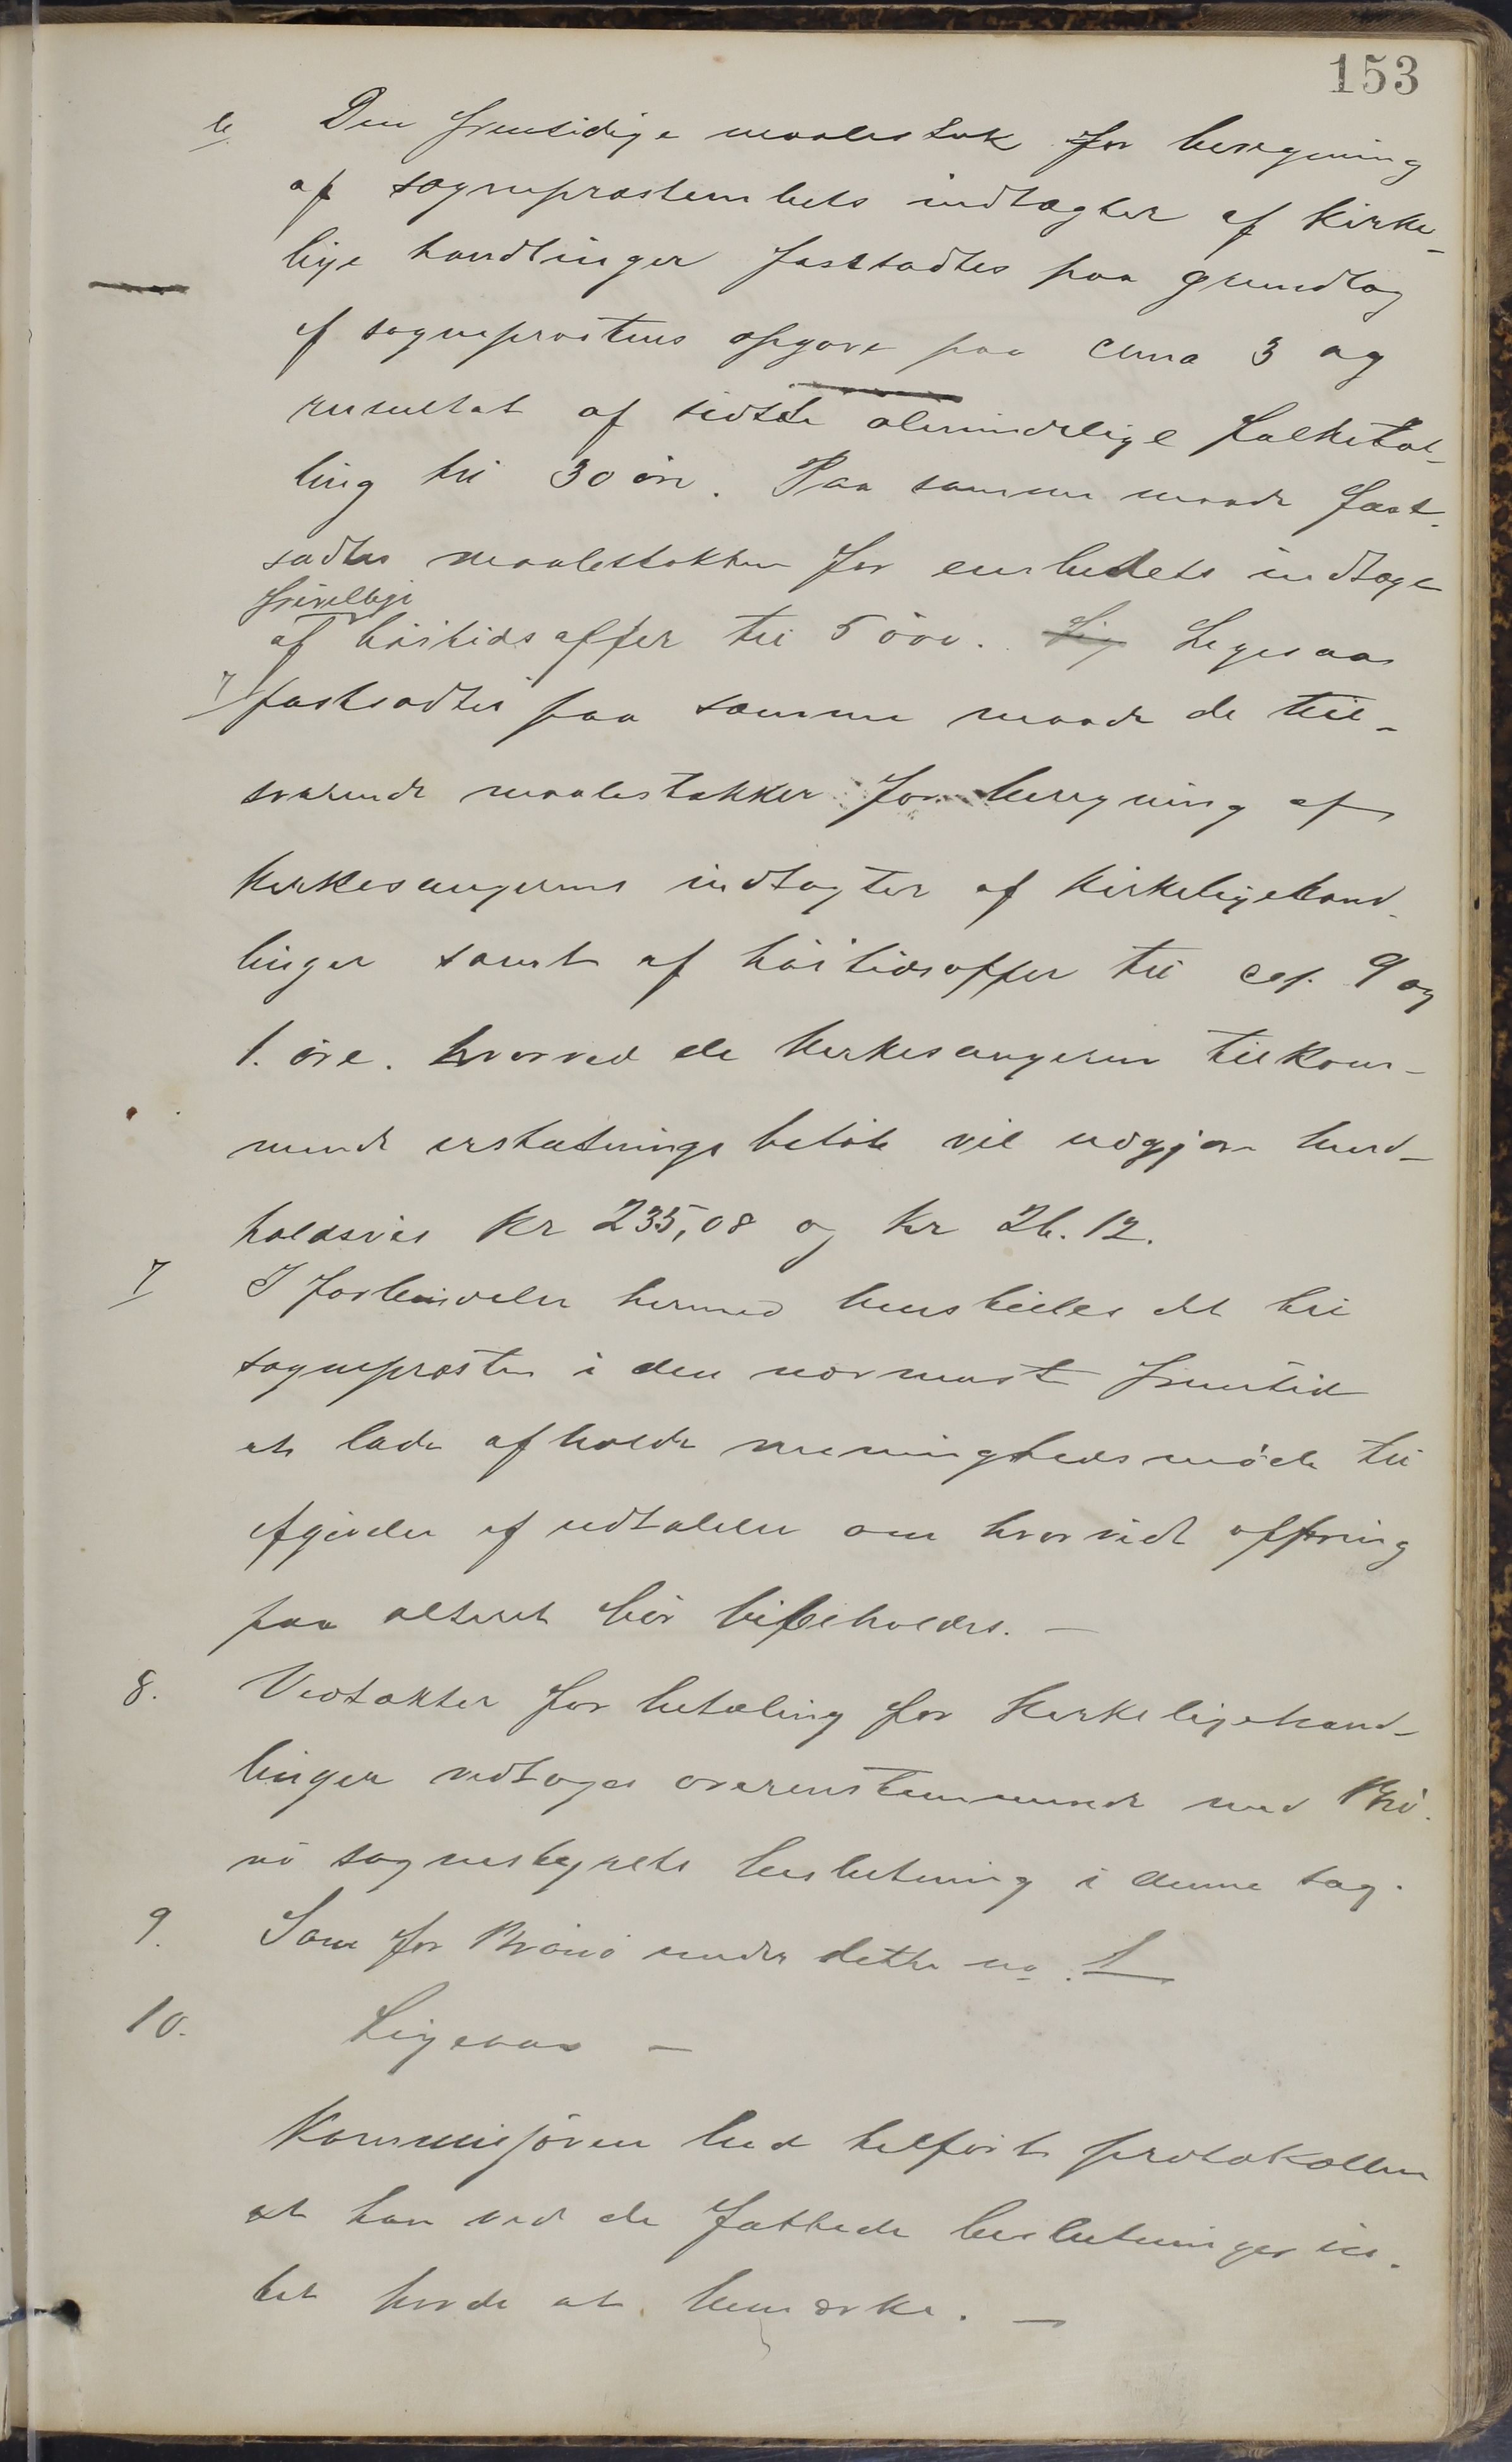 153
b. Den fremtidige maalestok for beregning
af sogneprestembets indtægter af kirke-
lige handlinger fastsadtes paa grundlag
af sogneprestens opgave paa cirka 3 og
resultat af sidste almindelige folketæl-
ling til 30 öre. Paa samme maade fast-
sadtes maalestokken for embedets indtægt
frivillige
af höitidsoffer til 5 öre. Lig Ligesaa
7 fastsadtes paa samme maade de til-
svarende maalestokker for beregning af
kirkesangerens indtægter af kirkelige hand-
linger samt af höitidsoffer til resp. 9 og
1. öre. hvorved de kirkesangeren tilkom-
mende erstatnings belöb vil udgjöre hend-
holdsvis kr 235,08 og kr 26.12.
7 I forbindelse hermed henstilles det til
sognepresten i den nærmeste fremtid
at lade afholde menighedsmöde til
afgivelse af udtalelse om hvorvidt offring
paa alteret bör bibeholdes. —
8. Vedtækter for betaling for kirkelige hand-
linger vedtages overensstemmende med Brö-
nö sognestyrets beslutning i denne sag.
9. Som for Brönö under dette no. 1
10. Ligesaa —
Kommisjören bad tilfört protokollen
at han ved de fattede beslutninger in-
tet havde at bemærke. —